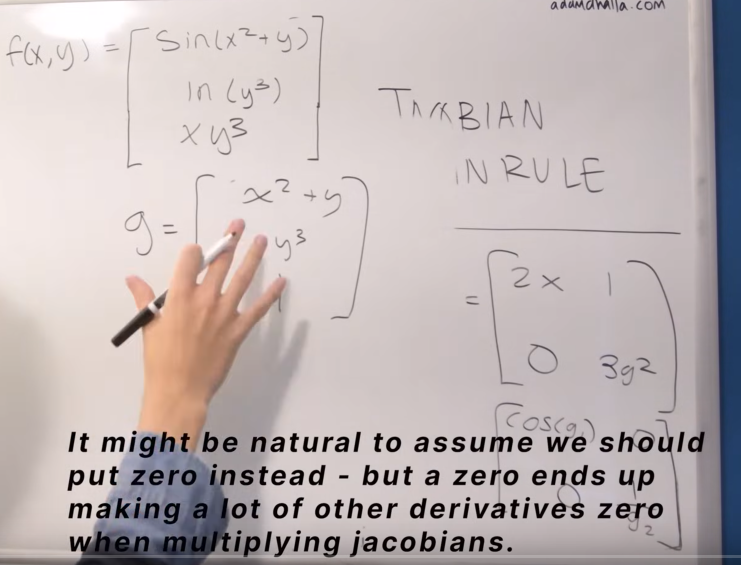 adamdhalla.com
f(x,y) = [ sin(x²+y)
ln (y³)
xy³ ]
BIAN
IN RULE
g = [ x² + y
y³
1 ]
= [ 2x 1
0 3y2 ]
[ cos(g₁) 0
0 ]
It might be natural to assume we should
put zero instead - but a zero ends up
making a lot of other derivatives zero
when multiplying jacobians.